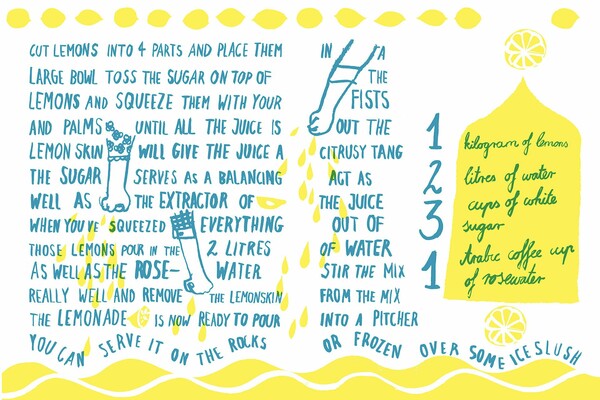 CUT LEMONS INTO 4 PARTS AND PLACE THEM IN A
LARGE BOWL TOSS THE SUGAR ON TOP OF THE
LEMONS AND SQUEEZE THEM WITH YOUR FISTS
AND PALMS UNTIL ALL THE JUICE IS OUT THE
LEMON SKIN WILL GIVE THE JUICE A CITRUSY TANG
THE SUGAR SERVES AS A BALANCING ACT AS
WELL AS THE EXTRACTOR OF THE JUICE
WHEN YOU'VE SQUEEZED EVERYTHING OUT OF
THOSE LEMONS POUR IN THE 2 LITRES OF WATER
AS WELL AS THE ROSE- WATER STIR THE MIX
REALLY WELL AND REMOVE THE LEMONSKIN FROM THE MIX
THE LEMONADE IS NOW READY TO POUR INTO A PITCHER
YOU CAN SERVE IT ON THE ROCKS OR FROZEN OVER SOME ICE SLUSH
1 kilogram of lemons
2 litres of water
3 cups of white
sugar
1 Arabic coffee cup
of rosewater